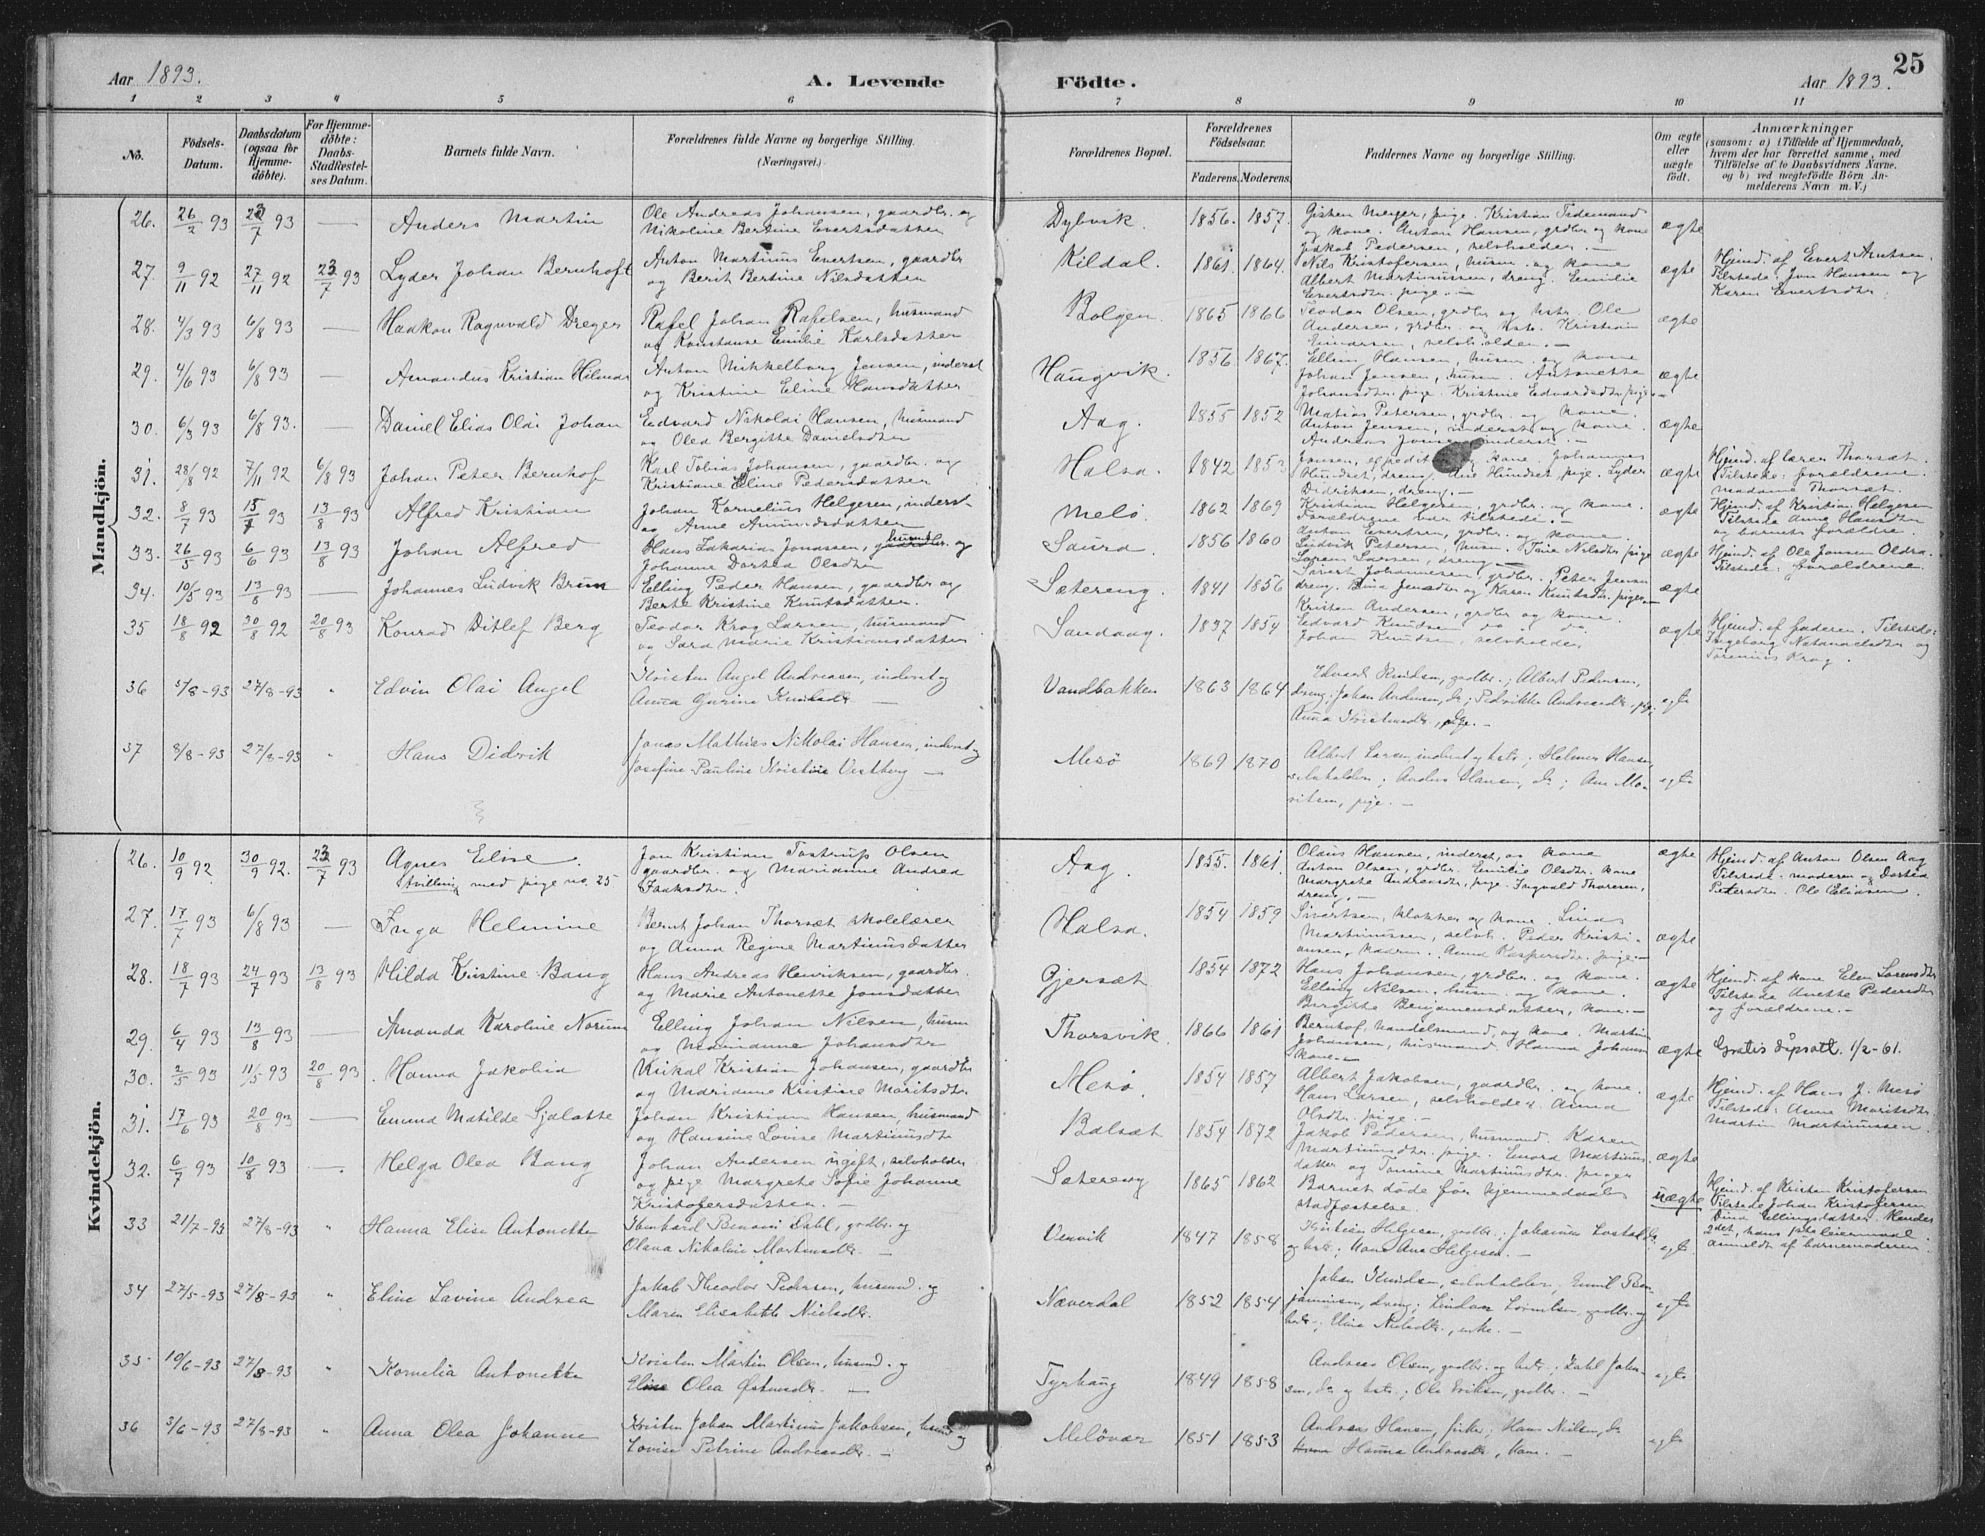 25
Aar 1893. A. Levende Födte. Aar 1893.
1 2 3 4 5 6 7 8 9 10 11
No. Födsels-Datum. Daabsdatum (ogsaa for Hjemme-döbte). For Hjemme-döbte: Daabs-Stadfæstel-ses Datum. Barnets fulde Navn. Forældrenes fulde Navne og borgerlige Stilling. (Næringsvei.) Forældrenes Bopæl. Forældrenes Födselsaar. Faderens. Moderens. Faddernes Navne og borgerlige Stilling. Om ægte eller uægte födt. Anmærkninger (saasom: a) i Tilfælde af Hjemmedaab, hvem der har forrettet samme, med Tilföielse af to Daabsvidners Navne, og b) ved uægtefödte Börn An-melderens Navn m. V.)
Mandkjön.
26. 26/2 93 23/7 93 — Anders Martin Ole Andreas Johansen, gaardbr. og Nikoline Bertine Evertsdatter Dybvik. 1856. 1857. Gisken Meyer, pige. Kristian Tidemand og kone. Anton Hansen, grdbr og kone Jakob Pedersen, selvholder. — ægte
27. 9/11 92 27/11 92 23/7 93 Lyder Johan Bernhoft Anton Martinus Evertsen, gaardbr og Berit Bertine Nilsdatter Kildal. 1861. 1864. Nils Kristofersen, husm. og kone Albert Martinussen, dreng. Emilie Evertsdtr. pige. — ægte Hjemd. af Evert Arntsen. Tilstede, Jon Hansen og Karen Evertsdtr.
28. 4/3 93 6/8 93 — Haakon Ragnvald Dreyer Rafel Johan Rafelsen, husmand og Konstanse Emilie Karlsdatter Bolgen. 1865 1866 Teodor Olsen, grdbr og hstr. Ole Andersen, grdbr. og hstr. Kristian Einarsen, selvholder. — ægte
29. 4/6 93 6/8 93 — Amandus Kristian Hilmar Anton Mikkelborg Jensen, inderst og Kristine Eline Hansdatter Haugvik. 1856 1867. Elling Hansen, husm. og kone Johan Jensen, husm. Antonette Johansdtr. pige. Kristine Edvardsdtr. pige. — ægte
30. 6/3 93 6/8 93. — Daniel Elias Olai Johan Edvard Nikolai Hansen, husmand og Olea Bergitte Danielsdtr Aag. 1855 1852 Matias Petersen, grdbr. og kone. Anton Jensen, inderst og kone. Andreas Jonsen, inderst. — ægte
31. 28/8 92 7/11 92 6/8 93 Johan Peter Bernhof Karl Tobias Johansen, gaardbr. og Kristiane Eline Pedersdatter Halsa. 1842 1853 Jonsen, expedit kone. Johannes Hundset, dreng. Ane Hundset pige. Lyder Didriksen, dreng. — ægte Hjemd. af lærer Thorsæt. Tilstede: forældrene. madame Thorsæt.
32. 8/7 93 15/7 93 13/8 93 Alfred Kristian Johan Kornelius Helgesen, inderst og Anne Amundsdatter Melö. 1862 1869 Kristian Helgesen, grdbr. og kone. Forældrene var tilstede. — ægte Hjemd. af Kristian Helgesen Tilstede Anna Hansdtr og barnets forældre.
33. 26/5 93 6/6 93 13/8 93 Johan Alfred Hans Zakarias Jonassen, husmd. og Johanne Dortea Olsdtr Saura. 1856 1860 Anton Evertsen, grdbr. og kone. Ludvik Petersen, husm. Nilsdtr, pige Soren Larsen, dreng. — ægte Hjemd. af Ole Jonsen Oldra. Tilstede: forældrene.
34. 10/5 93 13/8 93 — Johannes Ludvik Brun Elling Peder Hansen, gaardbr og Berte Kristine Knutsdatter. Sætereng. 1841 1856 Sivert Johannesen, grdbr. Peter Jensen dreng. Jensdtr og Karen Knutsdtr. piger. — ægte
35 18/8 92 30/8 92 20/8 93 Konrad Ditlef Berg Teodor Krog Larsen, husmand og Sara Marie Kristiansdatter Sandaag. 1837 1854 Kristen Andersen, grdbr og kone. Edvard Knudsen do do Johan Knudsen selvholder ægte Hjemd. af faderen. Tilstede: Ingeborg Natanaelsdtr og Torenius Krog.
36 5/8-93 27/8-93 " Edvin Olai Angel Kristen Angel Andreassen, inderst og Anna Gurine Knudsdr. — Vandbakken 1863 1864 Edvard Knudsen, grdbr.; Albert Pedersen, dreng; Johan Andersen, do; Fredrikke Andreasdr. pige; Anna Kristensdr., pige. — egte
37 8/8-93 27/8-93 " Hans Didrik Jonas Mathias Nikolai Hansen, inderst og Josefine Pauline Kristine Vestberg — Mesö 1869 1870 Albert Larsen, inderst og hstr.; Helmer Hansen, selvholder; Anders Hansen, do; Ane Mo-ritsen, pige. — egte
Kvindekjön.
26. 10/9 92 30/9 92. 23/7 93 Agnes Elise. tvilling med pige no. 25 Jon Kristian Tostrup Olsen gaardbr. og Marianne Andrea Isaksdtr. Aag. 1855. 1861. Olaus Hansen, inderst, og kone Anton Olsen, grdbr. Emilie Olsdtr. kone Margrete Andreasdtr, pige. Ingvald Thoresen, dreng. — ægte Hjemd. af Anton Olsen Aag Tilstede: moderen og Dortea Petersdtr. Ole Eliasen.
27. 17/7 93 6/8 93 — Inga Helmine Bernt Johan Thorsæt skolelærer og Anna Regine Martinusdatter Halsa. 1854 1859 Sivertsen, klokker og kone. Linds Martinussen, selvh. Peder Kristi-ansen, Anna Kaspersdtr. pige. — ægte
28. 18/7 93 24/7 93 13/8 93 Hilda Kristine Bang Hans Andreas Henriksen, gaardbr. og Marie Antonette Jonsdatter Gjersæt 1854 1872 Hans Johansen, grdbr. og kone. Elling Nilsen, husm. og kone. Bergitte Benjaminsdatter, kone. — ægte Hjemd. af kone Elen Lorensdtr Tilstede Anette Pedersdtr og forældrene. —
29. 6/4 93 13/8 93 — Amanda Karoline Norum Elling Johan Nilsen, husm og Marianne Johansdtr Thorsvik 1866 1861 Bernhof, handelsmand, og kone. Martin Johansen, husmand. Hanna Johans kone. — ægte Gratis dåpsatt. 1/2-61.
30. 2/5 93 11/5 93 20/8 93 Hanna Jakobia Mikal Kristian Johansen, gaardbr og Marianne Kristine Moritsdtr. Mesö. 1854 1857 Albert Jakobsen, gaardbr. og kone. Hans Larsen, selvholder. Anna Olsdtr. pige. — ægte Hjemd. af Hans J. Mesö Tilstede: Anna Moritsdtr. Martin Martinussen.
31. 17/6 93 20/8 93 — Emma Matilde Sjalotte Johan Kristian Hansen, husmand og Hansine Lovise Martinusdtr Balsæt 1854 1872 Jakob Pedersen, husmand. Karen Martinusdtr. pige. Martinus-datter og Tomine Martinusdtr. piger ægte
32. 6/7 93 10/8 93 — Helga Olea Bang Johan Andersen ugift, selvholder og pige Margrete Sofie Johanne Kristofersdatter. Sætereng 1865 1862 Barnet döde för hjemmedaabs stadfæstelse. uægte Hjemd. af Kristen Kristofersen Tilstede Johan Kristofersen Dina Ellingsdatter. Hendes 2det, hans 1ste leiermaal anmeldt af barnemoderen.
33 21/7-93 27/8-93 " Hanna Elise Antonette Benoni Dahl, grdbr. og Olava Nikoline Martinusdr. — Venvik 1847 1858 Kristian Helgesen, grdbr.; Johannes do og hstr.; kone Ane Helgesen. — egte
34 27/5-93 27/8-93 " Eline Lavine Andrea Jakob Theodor Pedersen, husmd. og Maren Elisabeth Nielsdr. Næverdal 1852 1854 Johan Knudsen, selvholder; Emil Ben-jaminsen, dreng; grdbr. og hstr.; Eline Nielsdr., enke. — egte
35 10/6-93 27/8-93 " Kornelia Antonette Kristen Martin Olsen, husmd. og Eline Olea Östensdr. — Tyrhaug 1849 1858 Andreas Olsen, grdbr. og hstr.; Dahl Johan-sen, do og hstr.; Ole Eriksen, grdbr. — egte
36 3/6-93 27/8-93 " Anna Olea Johanne Kristen Johan Martinus Jakobsen, husmd. og Lovise Petrine Andreasdr. — Melövær 1851 1853 Andreas Hansen, fisker; Hans Nielsen, do Hanna Andreasdr., kone. — egte